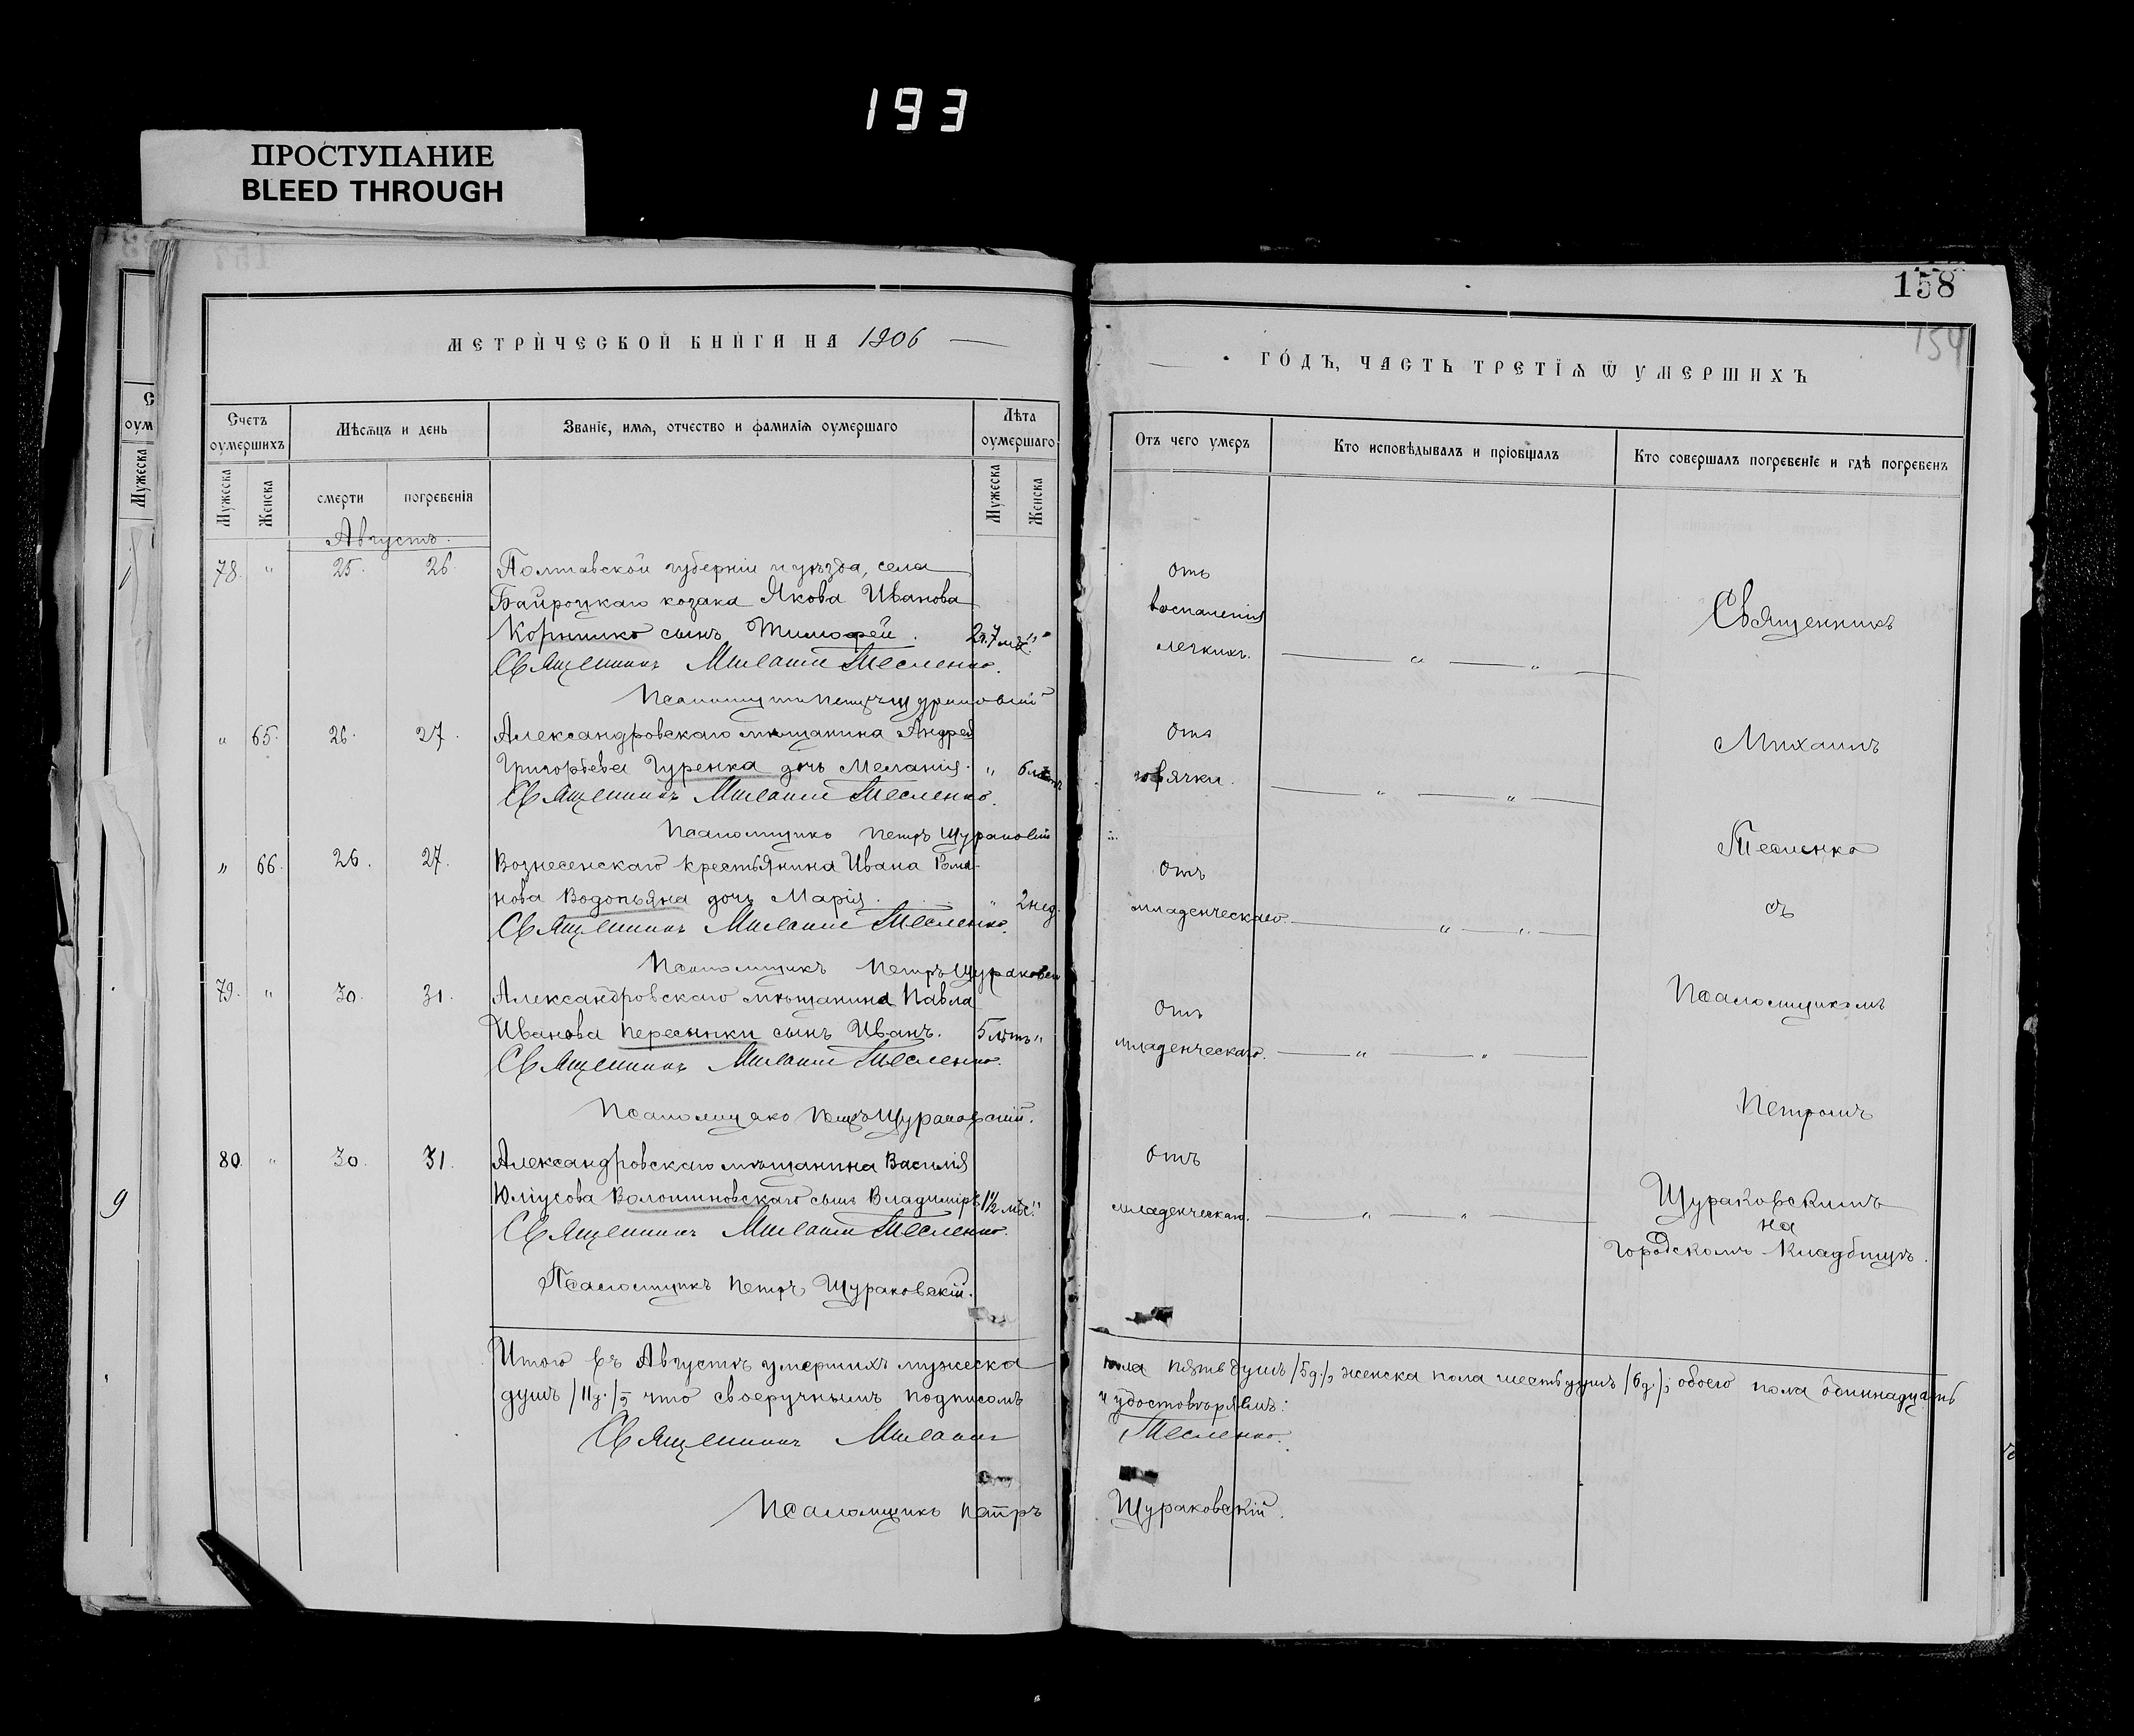 193
ПРОСТУПАНИЕ
BLEED THROUGH
158
154
МЕТРИЧЕСКОЙ КНИГИ НА 1906
ГОДЪ, ЧАСТЬ ТРЕТІѦ Ѿ УМЕРШИХЪ
Счетъ оумершихъ
Мѣсѧцъ и день
Званіе, имѧ, отчество и фамиліѧ оумершаго
Лѣта оумершаго
Отъ чего умеръ
Кто исповѣдывалъ и пріобщалъ
Кто совершалъ погребеніе и гдѣ погребенъ
Мужеска
Женска
смерти
погребенія
Мужеска
Женска
Августъ.
78. " 25. 26. Полтавской губерніи и уѣзда, села
козака Якова Иванова
сынъ Тимофей. 2 г. 7 мѣс. "
Священникъ Михаилъ Тесленко.
Псаломщикъ Петръ Щураковскій
отъ
воспаленія
легкихъ.
" 65. 26. 27. Александровскаго мѣщанина Андрея
Григорьева Гуренка дочь Меланія. " 6 лѣтъ
Священникъ Михаилъ Тесленко.
Псаломщикъ Петръ Щураковскій
отъ
горячки.
" 66. 26. 27. Вознесенскаго крестьянина Ивана Рома-
нова Водопьяна дочь Марія. " 2 нед.
Священникъ Михаилъ Тесленко.
Псаломщикъ Петръ Щураковскій
отъ
младенческаго.
79. " 30. 31. Александровскаго мѣщанина Павла
Иванова Пересыпки сынъ Иванъ. 5 лѣтъ "
Священникъ Михаилъ Тесленко.
Псаломщикъ Петръ Щураковскій.
отъ
младенческаго.
80. " 30. 31. Александровскаго мѣщанина Василія
Юліусова Волошиновскаго сынъ Владиміръ. 1½ мѣс. "
Священникъ Михаилъ Тесленко.
Псаломщикъ Петръ Щураковскій.
отъ
младенческаго.
Священникъ
Михаилъ
Тесленко
съ
Псаломщикомъ
Петромъ
Щураковскимъ
на
городскомъ кладбищѣ.
Итого въ Августѣ умершихъ мужеска пола пять душъ /5 д./, женска пола шесть душъ /6 д./; обоего пола одиннадцать
душъ /11 д./, что своеручнымъ подписомъ и удостовѣряемъ:
Священникъ Михаилъ Тесленко.
Псаломщикъ Петръ Щураковскій.